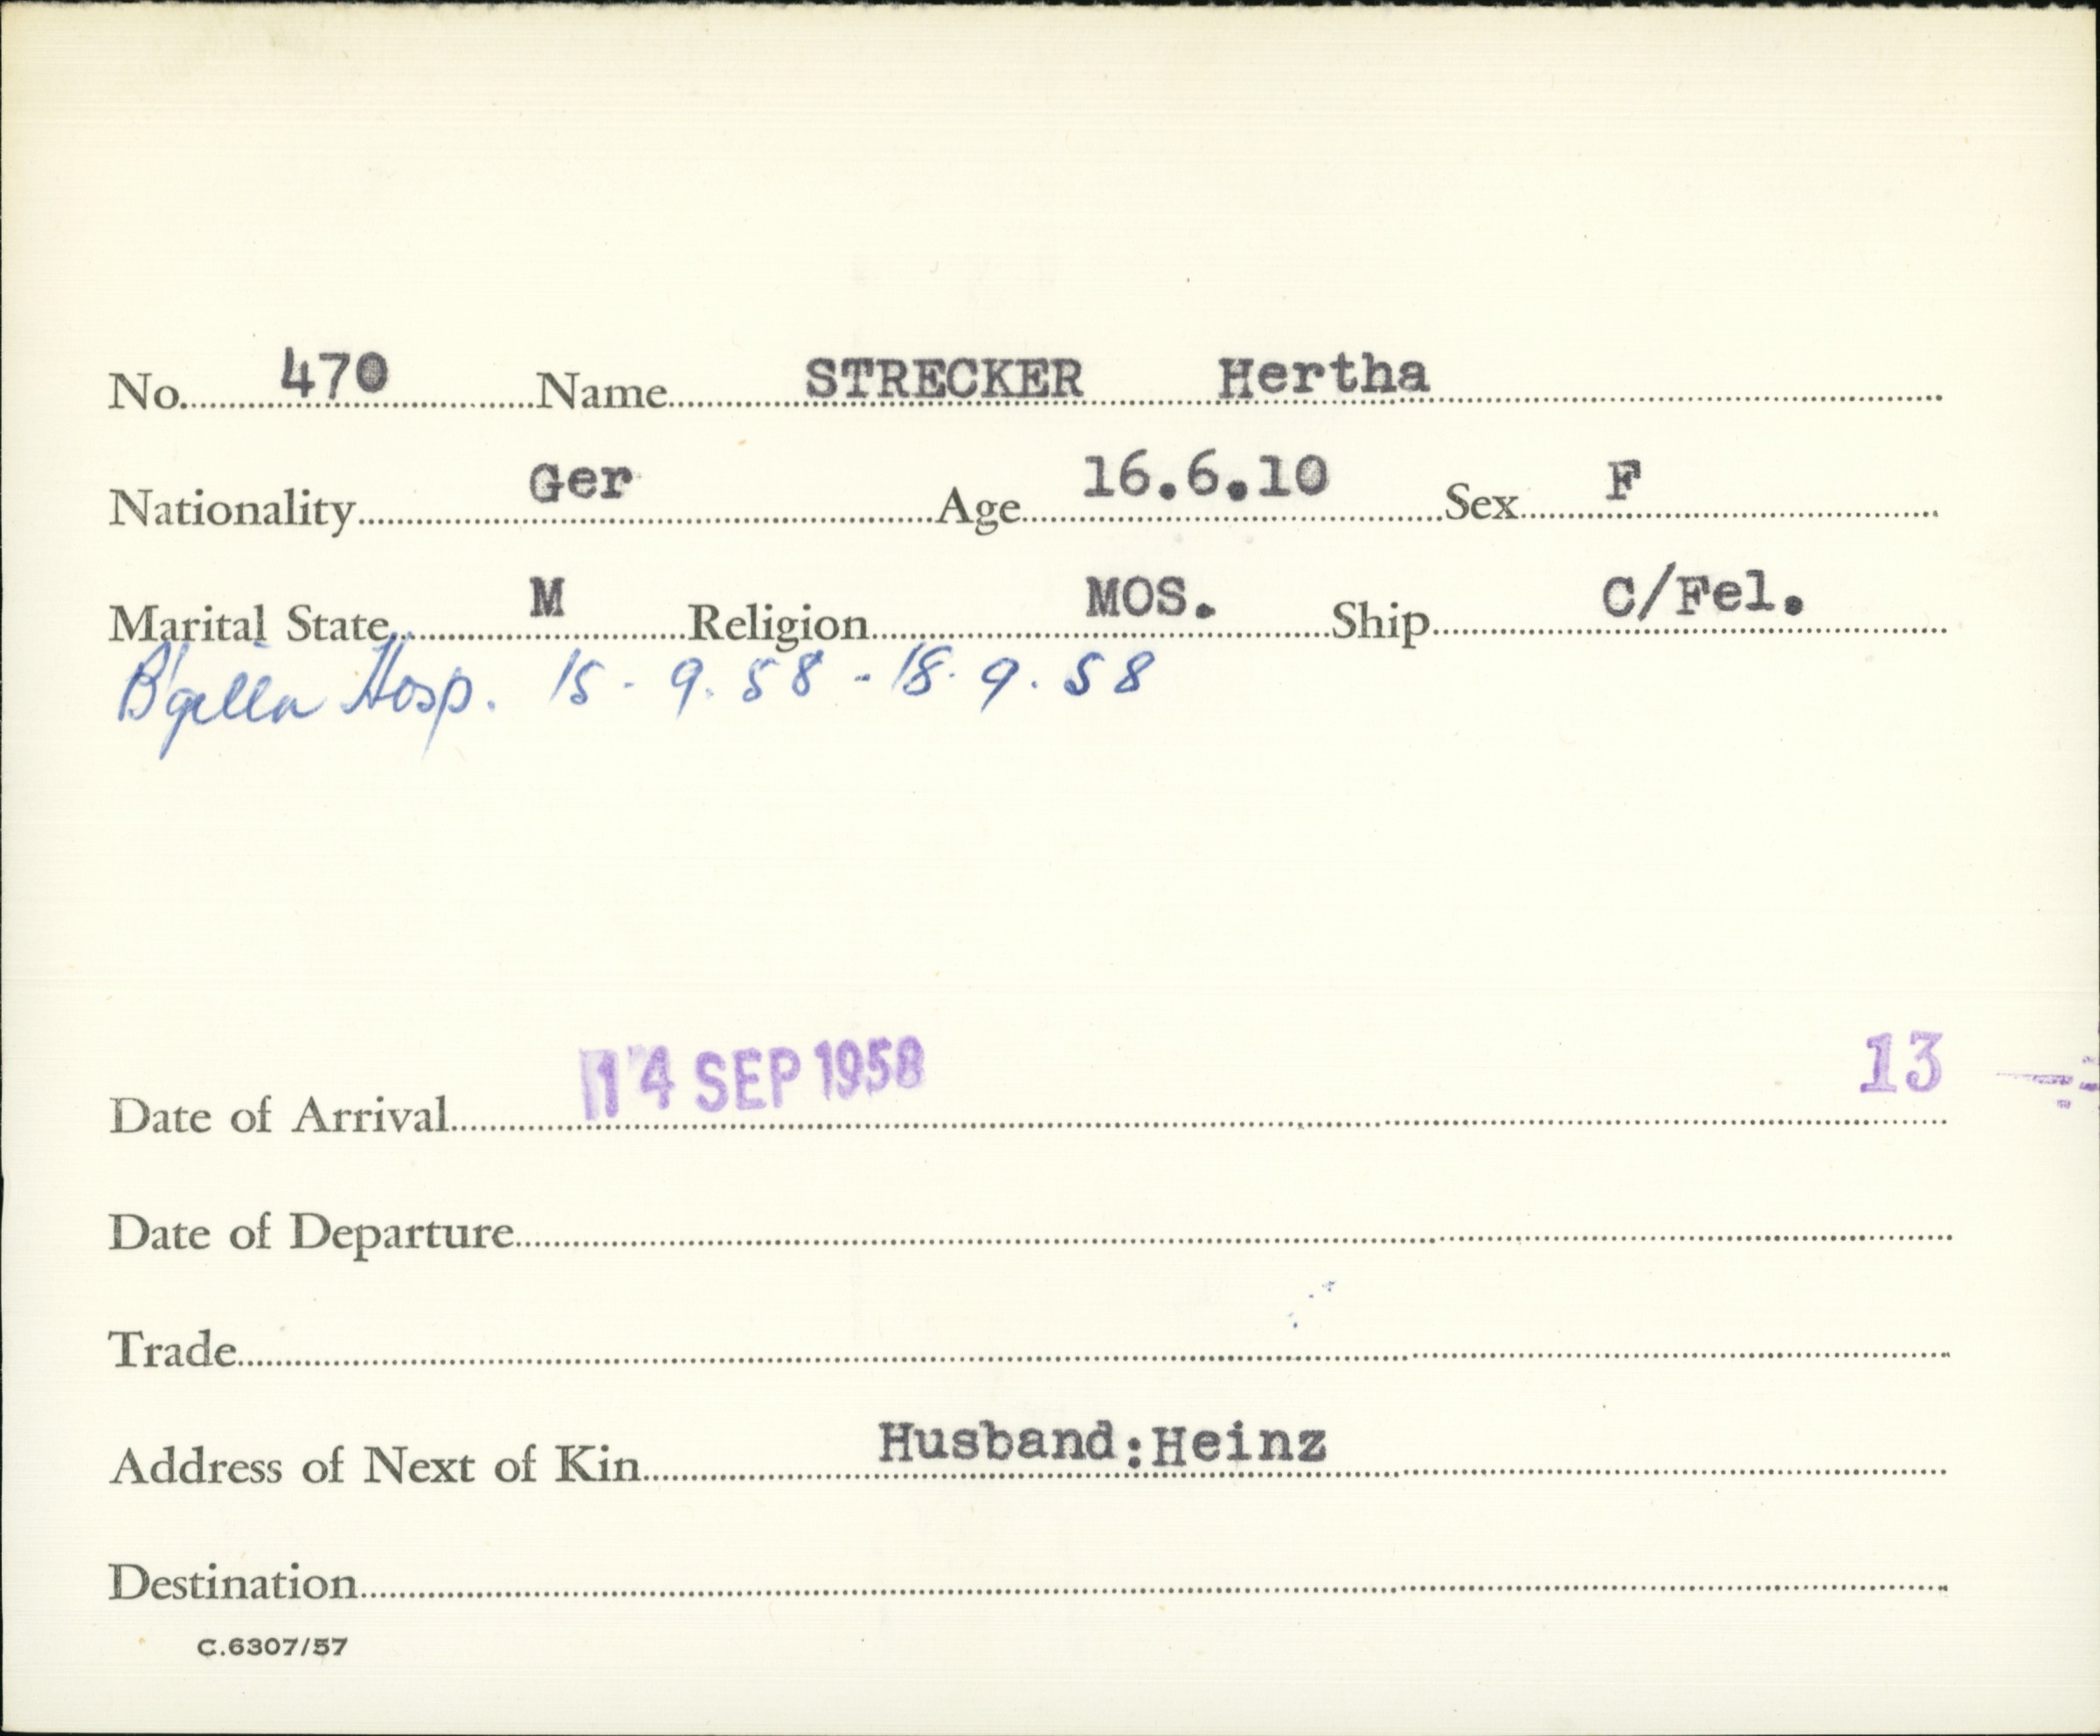 No. 470 Name STRECKER Hertha
Nationality Ger Age 16.6.10 Sex F
Marital State M Religion MOS. Ship C/Fel.
B'gilla Hosp. 15-9.58 - 18.9.58
Date of Arrival 14 SEP 1958 13
Date of Departure
Trade
Address of Next of Kin Husband:Heinz
Destination
C.6307/57